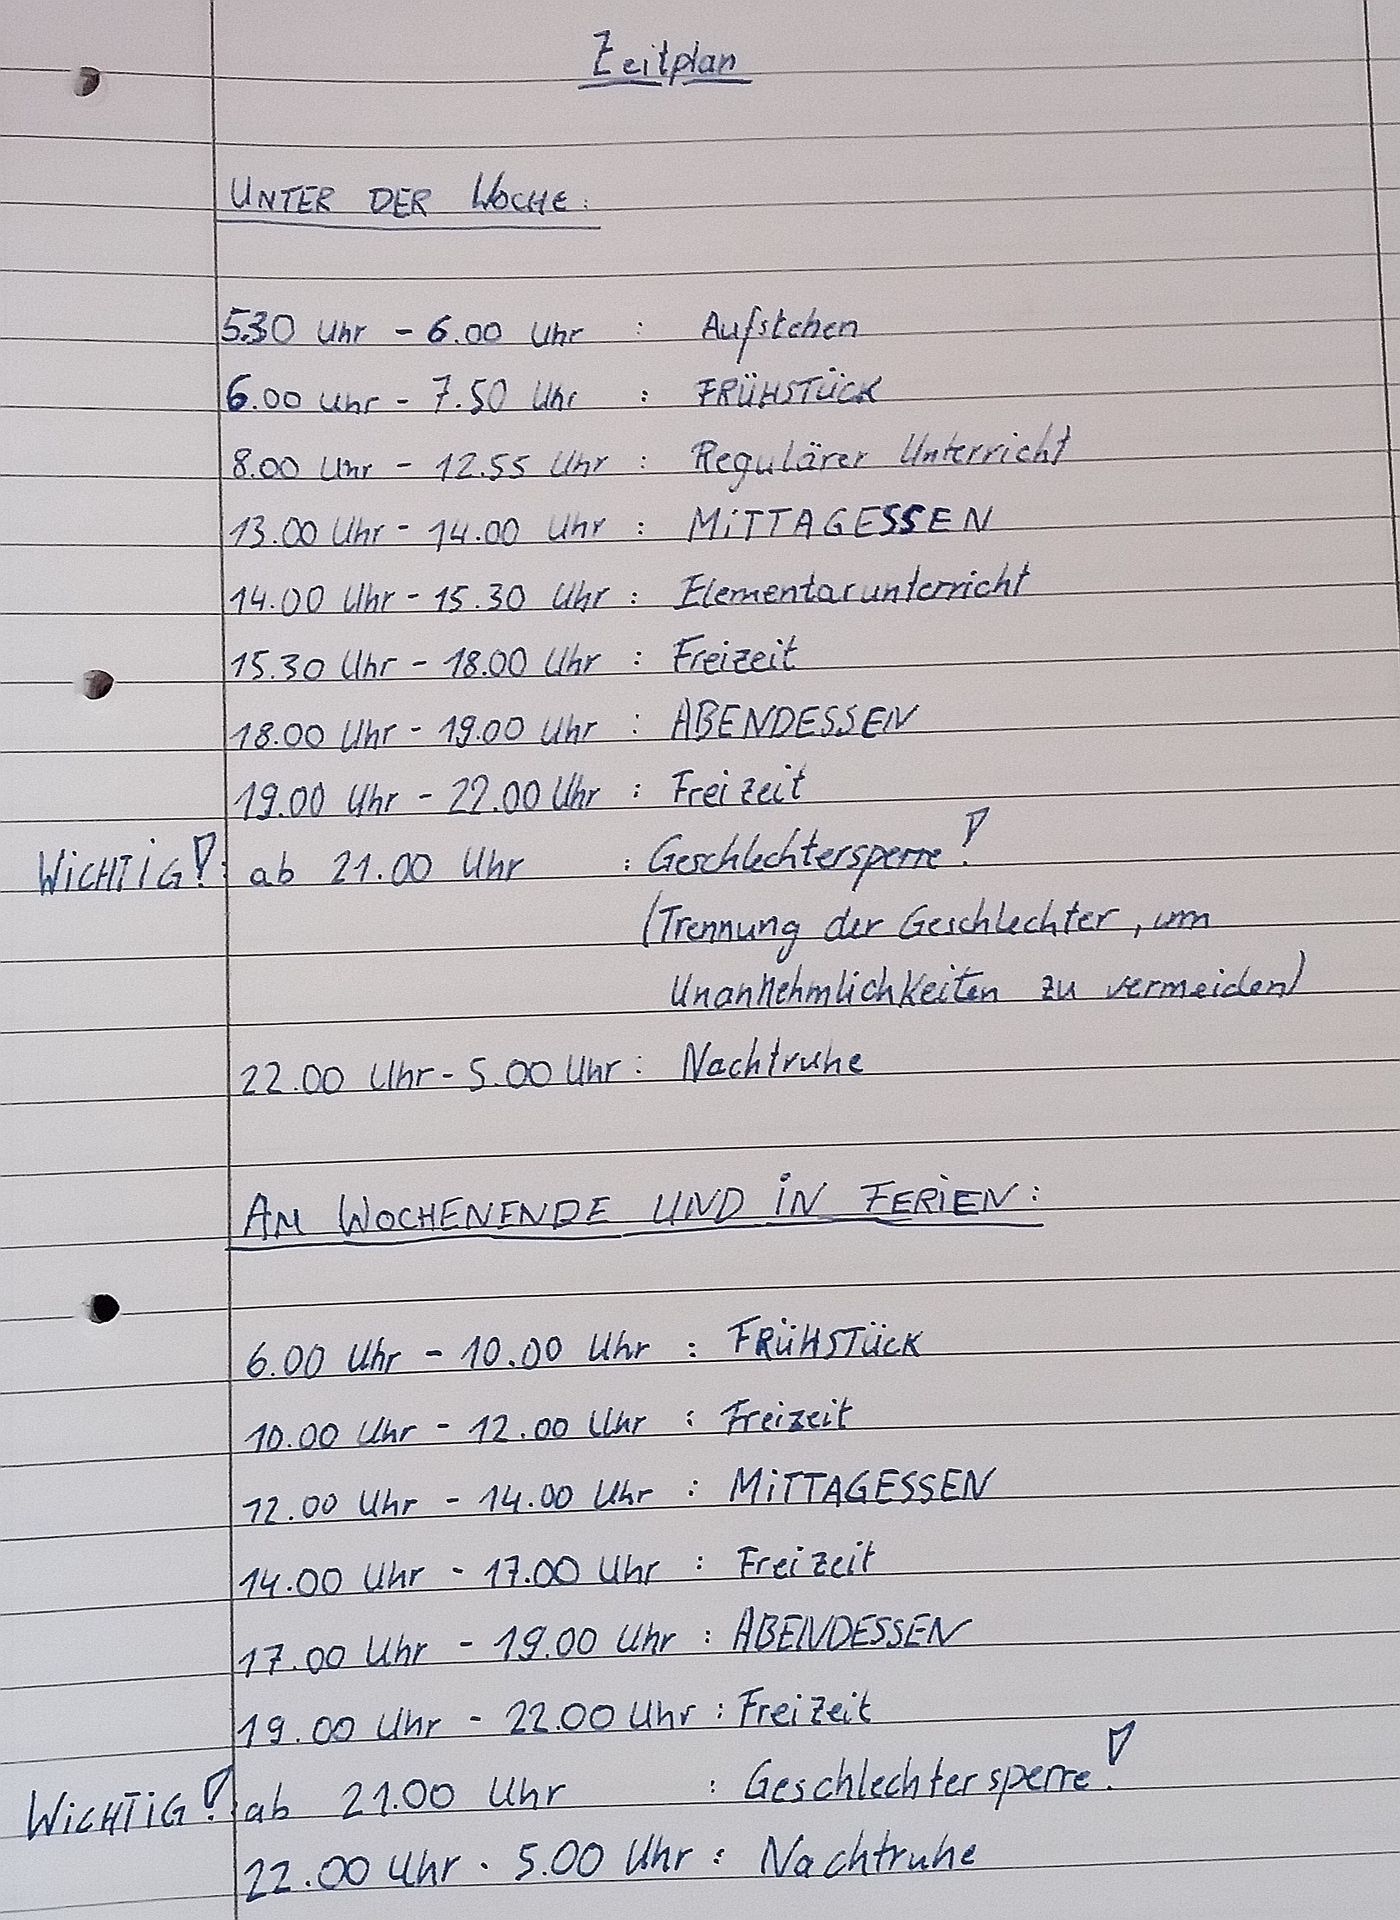 Zeitplan
UNTER DER WOCHE:
5.30 Uhr - 6.00 Uhr : Aufstehen
6.00 Uhr - 7.50 Uhr : FRÜHSTÜCK
8.00 Uhr - 12.55 Uhr : Regulärer Unterricht
13.00 Uhr - 14.00 Uhr : MiTTAGESSEN
14.00 Uhr - 15.30 Uhr : Elementarunterricht
15.30 Uhr - 18.00 Uhr : Freizeit
18.00 Uhr - 19.00 Uhr : ABENDESSEN
19.00 Uhr - 22.00 Uhr : Freizeit
WiCHTiG!: ab 21.00 Uhr : Geschlechtersperre!
(Trennung der Geschlechter, um
Unannehmlichkeiten zu vermeiden)
22.00 Uhr - 5.00 Uhr : Nachtruhe
AM WOCHENENDE UND iN FERiEN:
6.00 Uhr - 10.00 Uhr : FRÜHSTÜCK
10.00 Uhr - 12.00 Uhr : Freizeit
12.00 Uhr - 14.00 Uhr : MiTTAGESSEN
14.00 Uhr - 17.00 Uhr : Freizeit
17.00 Uhr - 19.00 Uhr : ABENDESSEN
19.00 Uhr - 22.00 Uhr : Freizeit
WiCHTiG!: ab 21.00 Uhr : Geschlechtersperre!
22.00 Uhr - 5.00 Uhr : Nachtruhe